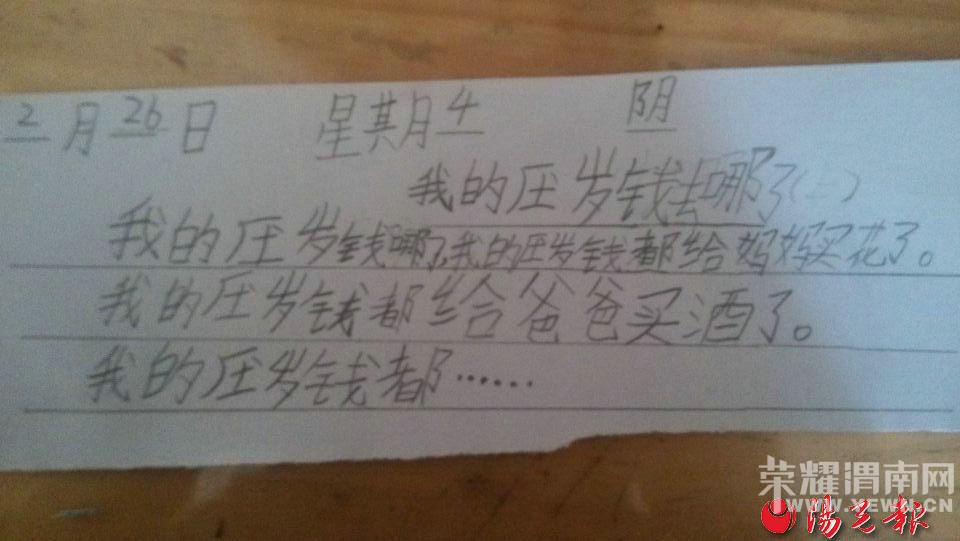 2月26日 星期月4 阴
我的压岁钱去哪了(二)
我的压岁钱哪了,我的压岁钱都给妈妈买花了。
我的压岁钱都给爸爸买酒了。
我的压岁钱都……
荣耀渭南网
WWW.XEWN.CN
阳光报